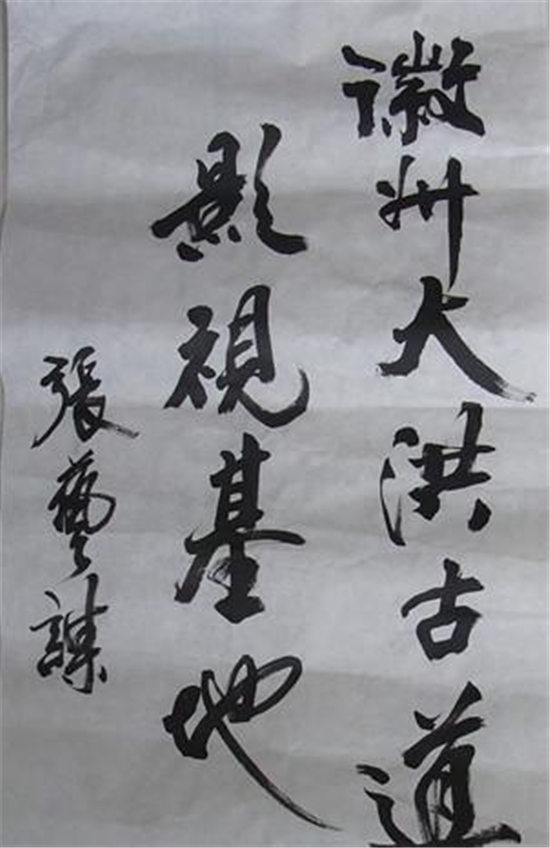 徽州大洪古道
影視基地
張藝謀